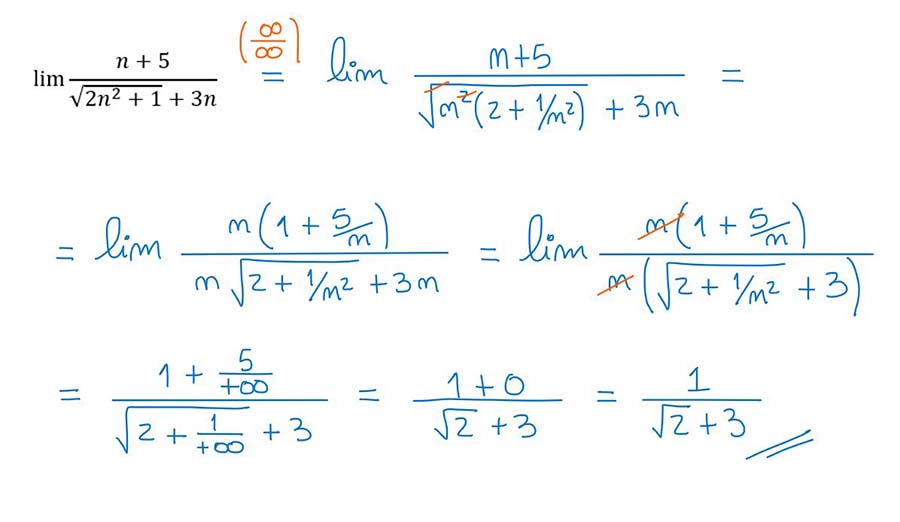 lim (n + 5)/(√(2n² + 1) + 3n) (∞/∞) = lim (n+5)/(√(n²(2 + 1/n²)) + 3n) =
= lim (n(1 + 5/n))/(n√(2 + 1/n²) + 3n) = lim (n(1 + 5/n))/(n(√(2 + 1/n²) + 3))
= (1 + 5/+∞)/(√(2 + 1/+∞) + 3) = (1+0)/(√2 + 3) = 1/(√2 + 3)